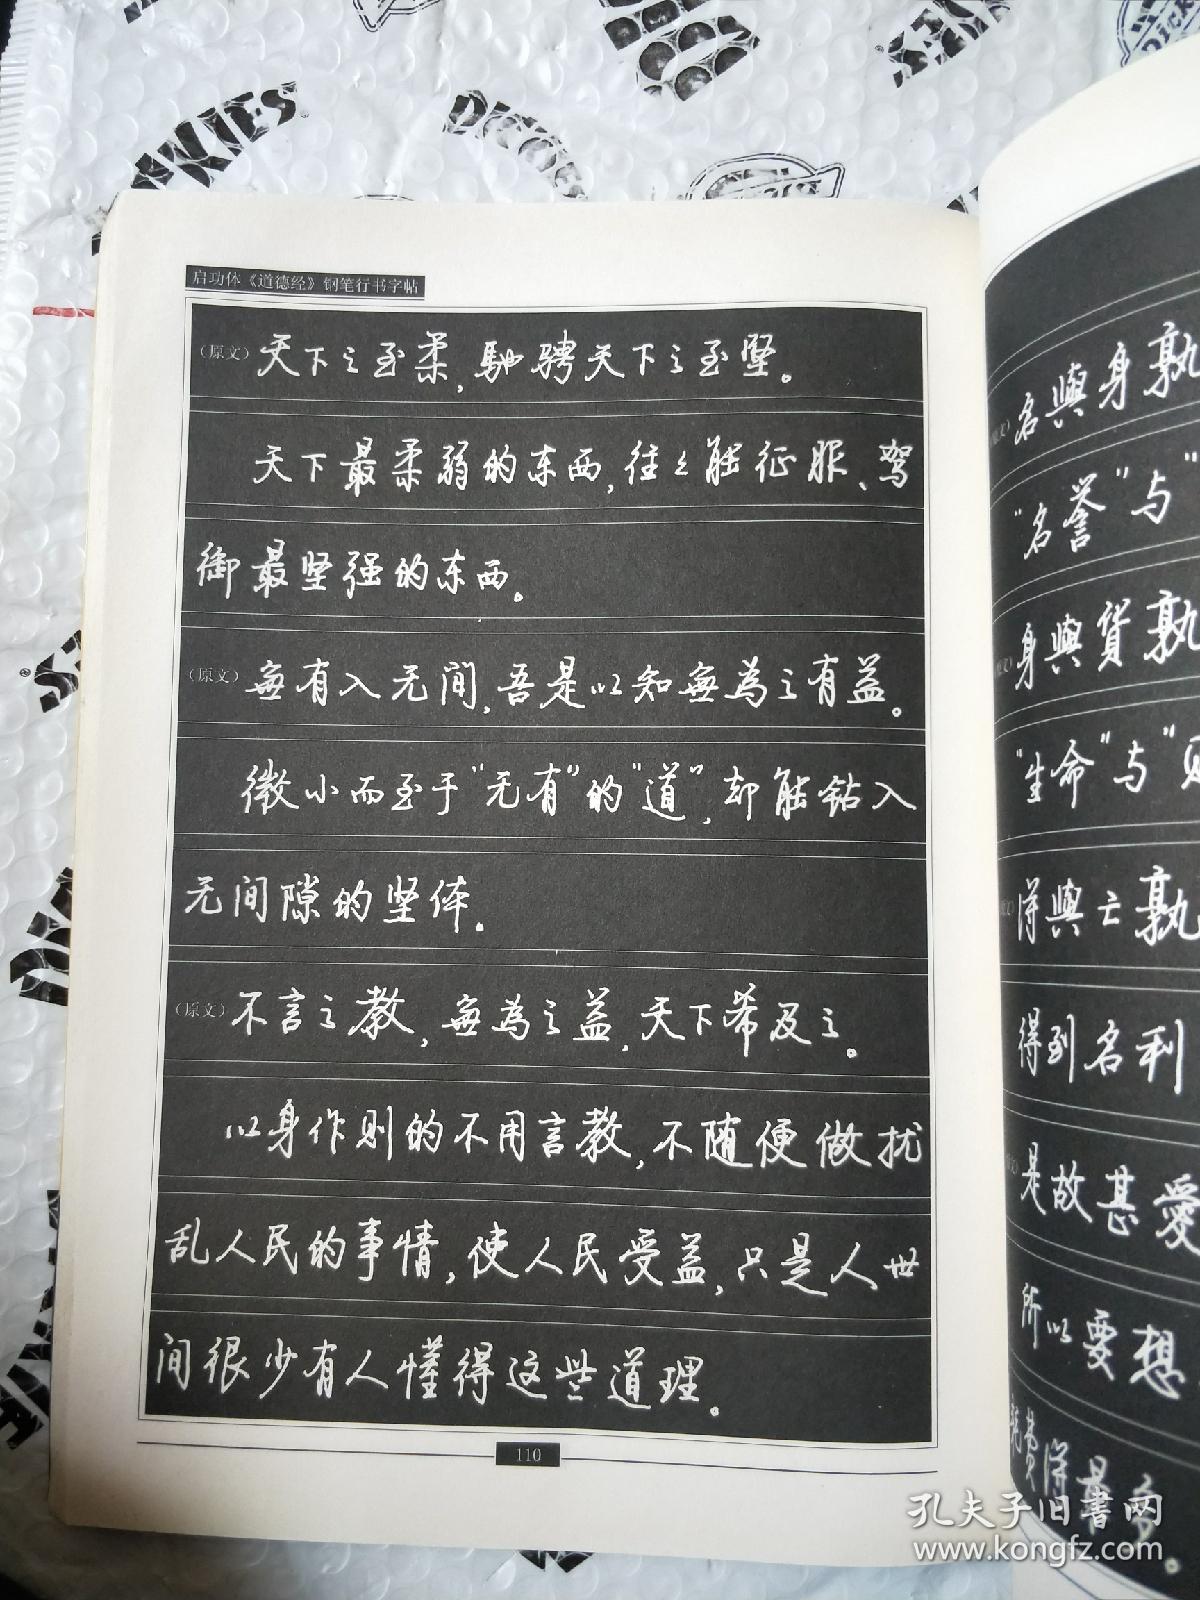 启功体《道德经》钢笔行书字帖
(原文)天下之至柔,馳骋天下之至堅。
天下最柔弱的东西,往々能征服、驾
御最坚强的东西。
(原文)無有入无间,吾是以知無為之有益。
微小而至于“无有”的“道”,却能钻入
无间隙的坚体。
(原文)不言之教,無為之益,天下希及之。
以身作则的不用言教,不随便做扰
乱人民的事情,使人民受益,只是人世
间很少有人懂得这些道理。
110
名與身孰
“名誉”与“
身與貨孰
“生命”与“
得與亡孰
得到名利
是故甚愛
所以要想
耗费得最多。
DICKIES
孔夫子旧書网
www.kongfz.com